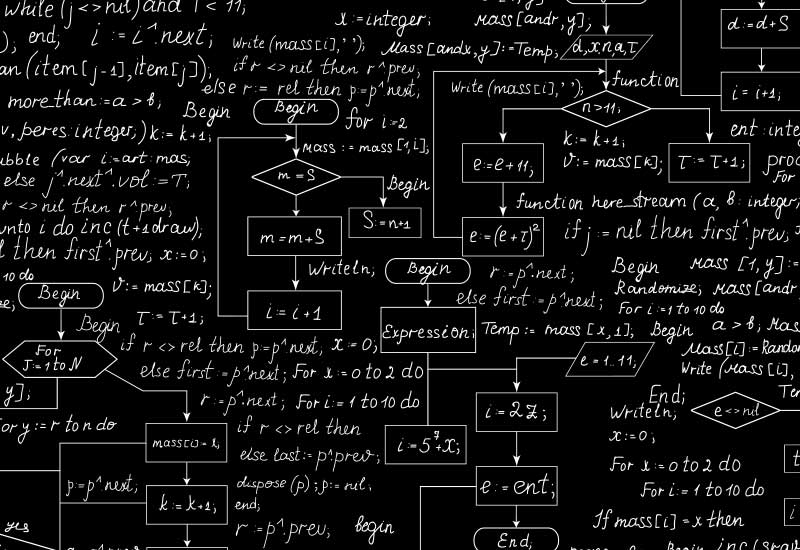 while (j <> nil) and
x := integer;
mass [andr, y];
d := d + S
end;
i := i^.next;
Write (mass[i],' ');
Mass [andx, y] := Temp;
d, x, n, a, τ
(item [j-1], item[j]);
if r <> nil then r^prev;
else r := rel then p := p^next;
Write (mass[i],' ');
function
more_than := a > b;
Begin
Begin
for i := 2
n > 11;
i = i + 1;
v, peres : integer;)
k := k + 1;
mass := mass [1, i];
k := k + 1;
(var i := art : mas;
m = S
Begin
e := e + 11;
v := mass [k];
τ := τ + 1;
else j^.next^.vol := T;
r <> nil then r^prev;
function here_stream (a, b : integer;
i do inc (t + 1 draw);
m = m + S
S := n + 1
e := (e + τ)²
if j := nil then first^.prev;
then first^.prev; x := 0;
Writeln;
Begin
r := p^.next;
Begin
Mass [1, y] :=
10 do
Begin
v := mass [k];
Randomize;
else first := p^next;
i := i + 1
For i := 1 to 10 do
τ := τ + 1;
Begin
Expression;
Temp := mass [x, 1];
Begin
a > b;
if r <> rel then p := p^next;
x := 0;
For
J := 1 to N
e = 1..11;
Mass[i] := Random
else first := p^next;
For x := 0 to 2 do
Write (Mass[i],
y];
r := p^.next;
For i := 1 to 10 do
i := 2z;
End;
Writeln;
e <> nil
For y := r to n do
if r <> rel then
mass[i] = 1,
i := 5⁷ + x;
x := 0;
else last := p^.prev;
For x := 0 to 2 do
p := p^next;
dispose (p); p := nil,
e := ent;
For i := 1 to 10 do
k := k + 1;
end;
If mass [i] = x then
yes
r := p^.prev;
begin
End;